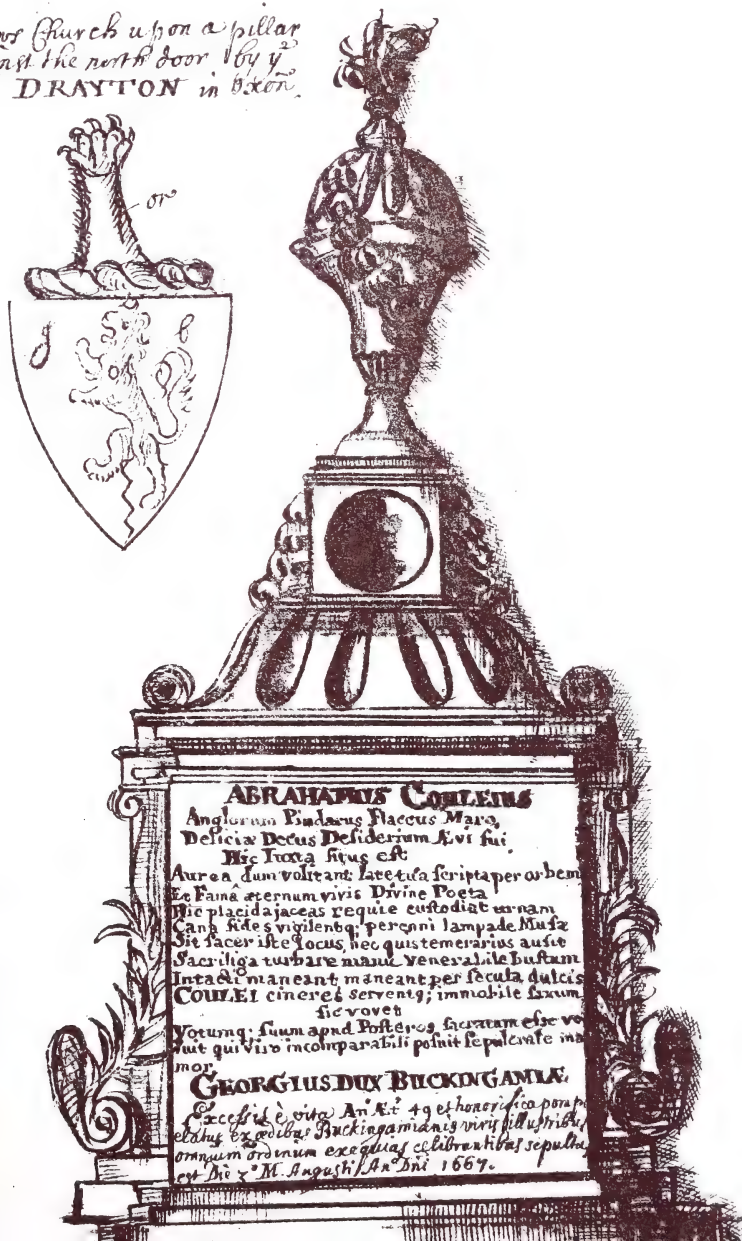 Church upon a pillar
the north door by yᵉ
DRAYTON in Oxoñ.
or
g
b
ABRAHAMUS COULEIUS
Anglorum Pindarus Flaccus Maro,
Deliciæ Decus Desiderium Ævi sui
Hic Iuxta situs est
Aurea dum volitant late tua scripta per orbem
Et Famâ æternum vivis Divine Poeta
Hic placida jaceas requie custodiat urnam
Cana fides vigilentq; perenni lampade Musæ
Sit sacer iste locus, nec quis temerarius ausit
Sacriliga turbare manu venerabile bustum
Intacti maneant, maneant per secula dulcis
COULEI cineres serventq; immobile saxum
sic vovet
Votumq: suum apud Posteros sacratum esse vo
luit qui Viro incomparabili posuit sepulcrale ma
mor
GEORGIUS DUX BUCKINGAMIÆ.
Excessit è vita Anº Ætˢ 49 et honorifica pompa
elatus ex ædibus Buckingamianis viris illustribus
omnium ordinum exequias celibrantibus sepultus
est Die 3º M. Augusti Anº Dni 1667.